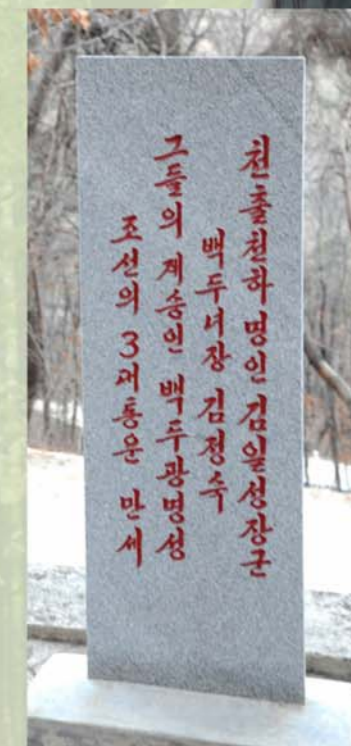 천출천하명인 김일성장군
백두녀장 김정숙
그들의 계승인 백두광명성
조선의 3대통운 만세